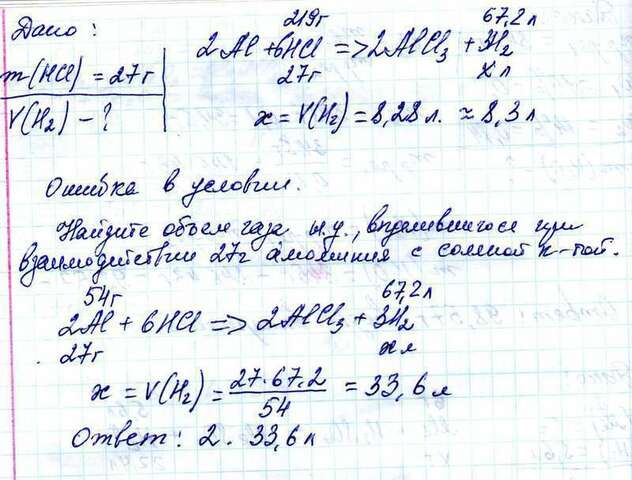 Дано:
219г 67,2л
2Al + 6HCl => 2AlCl₃ + 3H₂
m(HCl) = 27г
27г x л
V(H₂) - ?
x = V(H₂) = 8,28 л. ≈ 8,3 л
Ошибка в условии.
Найдите объем газа н.у., выделившегося при
взаимодействии 27г алюминия с соляной к-той.
54г 67,2л
2Al + 6HCl => 2AlCl₃ + 3H₂
27г x л
x = V(H₂) = 27·67,2 / 54 = 33,6 л
Ответ: 2. 33,6 л